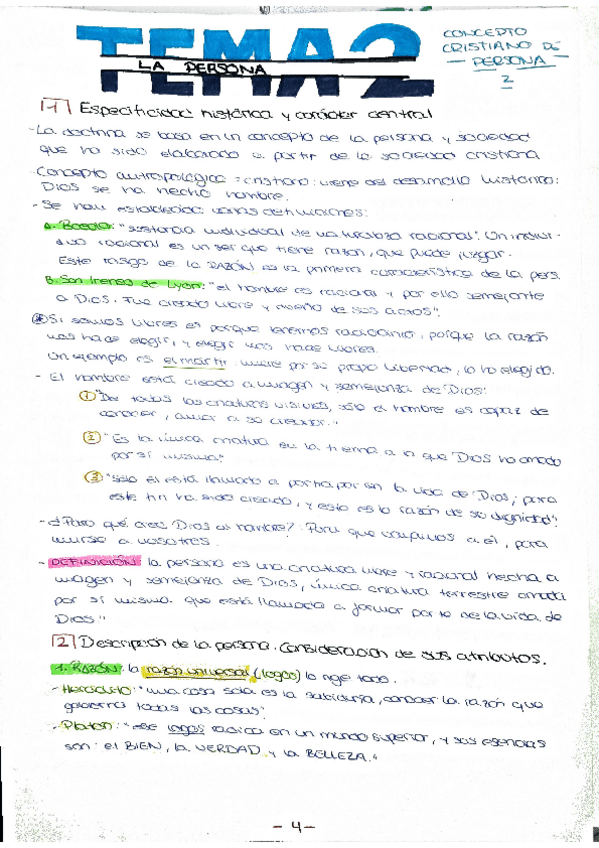 TEMA 2
LA PERSONA
CONCEPTO
CRISTIANO DE
PERSONA
2
1 Especificidad histórica y carácter central
- La doctrina se basa en un concepto de la persona y sociedad
que ha sido elaborado a partir de la sociedad cristiana
- Concepto antropológico = cristiano: viene del desarrollo histórico:
Dios se ha hecho hombre.
- Se han establecido varias definiciones:
A. Boecio: "sustancia individual de naturaleza racional". Un indivi-
duo racional es un ser que tiene razón, que puede juzgar.
Este rasgo de la RAZÓN es la primera característica de la pers.
B. San Ireneo de Lyon: "el hombre es racional y por ello semejante
a Dios. Fue creado libre y dueño de sus actos".
Si somos libres es porque tenemos raciocinio, porque la razón
nos hace elegir, y elegir nos hace libres.
Un ejemplo es el mártir: muere por su propia libertad, lo ha elegido.
- El hombre está creado a imagen y semejanza de Dios:
1 "De todas las criaturas visibles, sólo el hombre es capaz de
conocer, amar a su creador."
2 "Es la única criatura en la tierra a la que Dios ha amado
por sí misma."
3 "Sólo él está llamado a participar en la vida de Dios; para
este fin ha sido creado, y esto es la razón de su dignidad".
- ¿Para qué crea Dios al hombre? Para que vayamos a él, para
unirse a nosotros.
- DEFINICIÓN: la persona es una criatura libre y racional hecha a
imagen y semejanza de Dios, única criatura terrestre amada
por sí misma que está llamada a formar parte de la vida de
Dios"
2 Descripción de la persona. Consideración de sus atributos.
1. RAZÓN: la razón universal (logos) lo rige todo.
- Heráclito: "una cosa sola es la sabiduría, conocer la razón que
gobierna todas las cosas"
- Platón: "ese logos radica en un mundo superior, y sus esencias
son: el BIEN, la VERDAD y la BELLEZA."
- 4 -